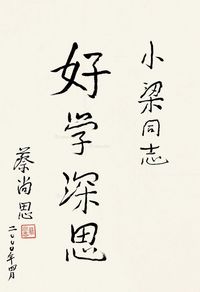 小梁同志
好学深思
蔡尚思
二〇〇〇年四月